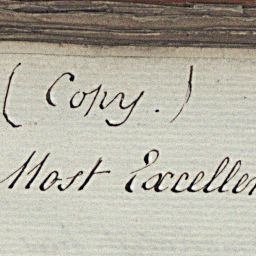 (Copy.)
Most Excellen